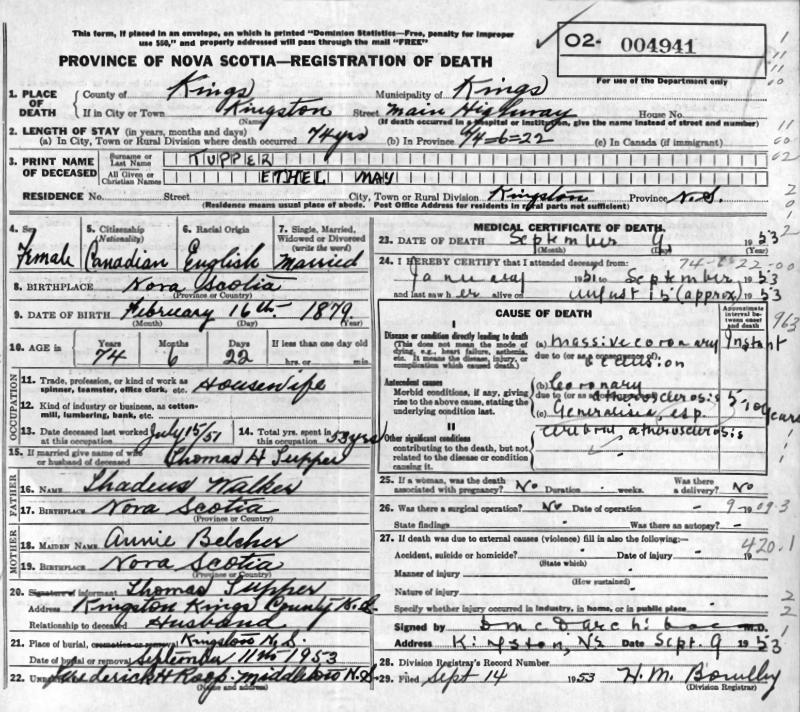 This form, if placed in an envelope, on which is printed "Dominion Statistics—Free, penalty for improper
use $50," and properly addressed will pass through the mail "FREE"
PROVINCE OF NOVA SCOTIA—REGISTRATION OF DEATH
O2- 004941
For use of the Department only
1. PLACE OF DEATH County of Kings Municipality of Kings
If in City or Town Kingston (Name) Street Main Highway House No.
(If death occurred in a hospital or institution, give the name instead of street and number)
2. LENGTH OF STAY (in years, months and days)
(a) In City, Town or Rural Division where death occurred 74 yrs (b) In Province 74-6-22 (c) In Canada (if immigrant)
3. PRINT NAME OF DECEASED Surname or Last Name TUPPER
All Given or Christian Names ETHEL MAY
RESIDENCE No. Street City, Town or Rural Division Kingston Province N.S.
(Residence means usual place of abode. Post Office Address for residents in rural parts not sufficient)
4. Sex 5. Citizenship (Nationality) 6. Racial Origin 7. Single, Married, Widowed or Divorced (write the word)
Female Canadian English Married
8. BIRTHPLACE Nova Scotia
(Province or Country)
9. DATE OF BIRTH February 16th 1879
(Month) (Day) (Year)
10. AGE in Years Months Days If less than one day old
74 6 22 hrs. or min.
OCCUPATION
11. Trade, profession, or kind of work as spinner, teamster, office clerk, etc. Housewife
12. Kind of industry or business, as cotton-mill, lumbering, bank, etc.
13. Date deceased last worked at this occupation July 15/51 14. Total yrs. spent in this occupation 53 yrs
15. If married give name of wife or husband of deceased Thomas H Tupper
FATHER
16. NAME Thadeus Walker
17. BIRTHPLACE Nova Scotia
(Province or Country)
MOTHER
18. MAIDEN NAME Annie Belcher
19. BIRTHPLACE Nova Scotia
(Province or Country)
20. Signature of informant Thomas Tupper
Address Kingston Kings County N.S.
Relationship to deceased Husband
21. Place of burial, cremation or removal Kingston N.S.
Date of burial or removal September 11th 1953
22. Undertaker Frederick H Roop. Middleton N.S.
(Name and address)
MEDICAL CERTIFICATE OF DEATH.
23. DATE OF DEATH September 9 1953
(Month) (Day) (Year)
74-6-22-00
24. I HEREBY CERTIFY that I attended deceased from:
January 1951 to September 1953
and last saw her alive on August 15 (approx) 1953
CAUSE OF DEATH
Approximate interval between onset and death
963
I
Disease or condition directly leading to death
(This does not mean the mode of dying, e.g., heart failure, asthenia, etc. It means the disease, injury, or complication which caused death.)
(a) Massive coronary Instant
due to (or as a consequence of)
occlusion
Antecedent causes
Morbid conditions, if any, giving rise to the above cause, stating the underlying condition last.
(b) Coronary
due to (or as a consequence of)
atherosclerosis 5-10 years
(c) Generalised esp.
cerebral atherosclerosis
II
Other significant conditions
contributing to the death, but not related to the disease or condition causing it.
25. If a woman, was the death associated with pregnancy? No Duration - weeks. Was there a delivery? No
26. Was there a surgical operation? No Date of operation - 19
State findings - Was there an autopsy? -
27. If death was due to external causes (violence) fill in also the following:—
420.1
Accident, suicide or homicide? Date of injury - 19
(State which)
Manner of injury
(How sustained)
Nature of injury
Specify whether injury occurred in industry, in home, or in public place
Signed by M.D.
Address Kingston, NS Date Sept. 9 1953
28. Division Registrar's Record Number
29. Filed Sept 14 1953
(Division Registrar)